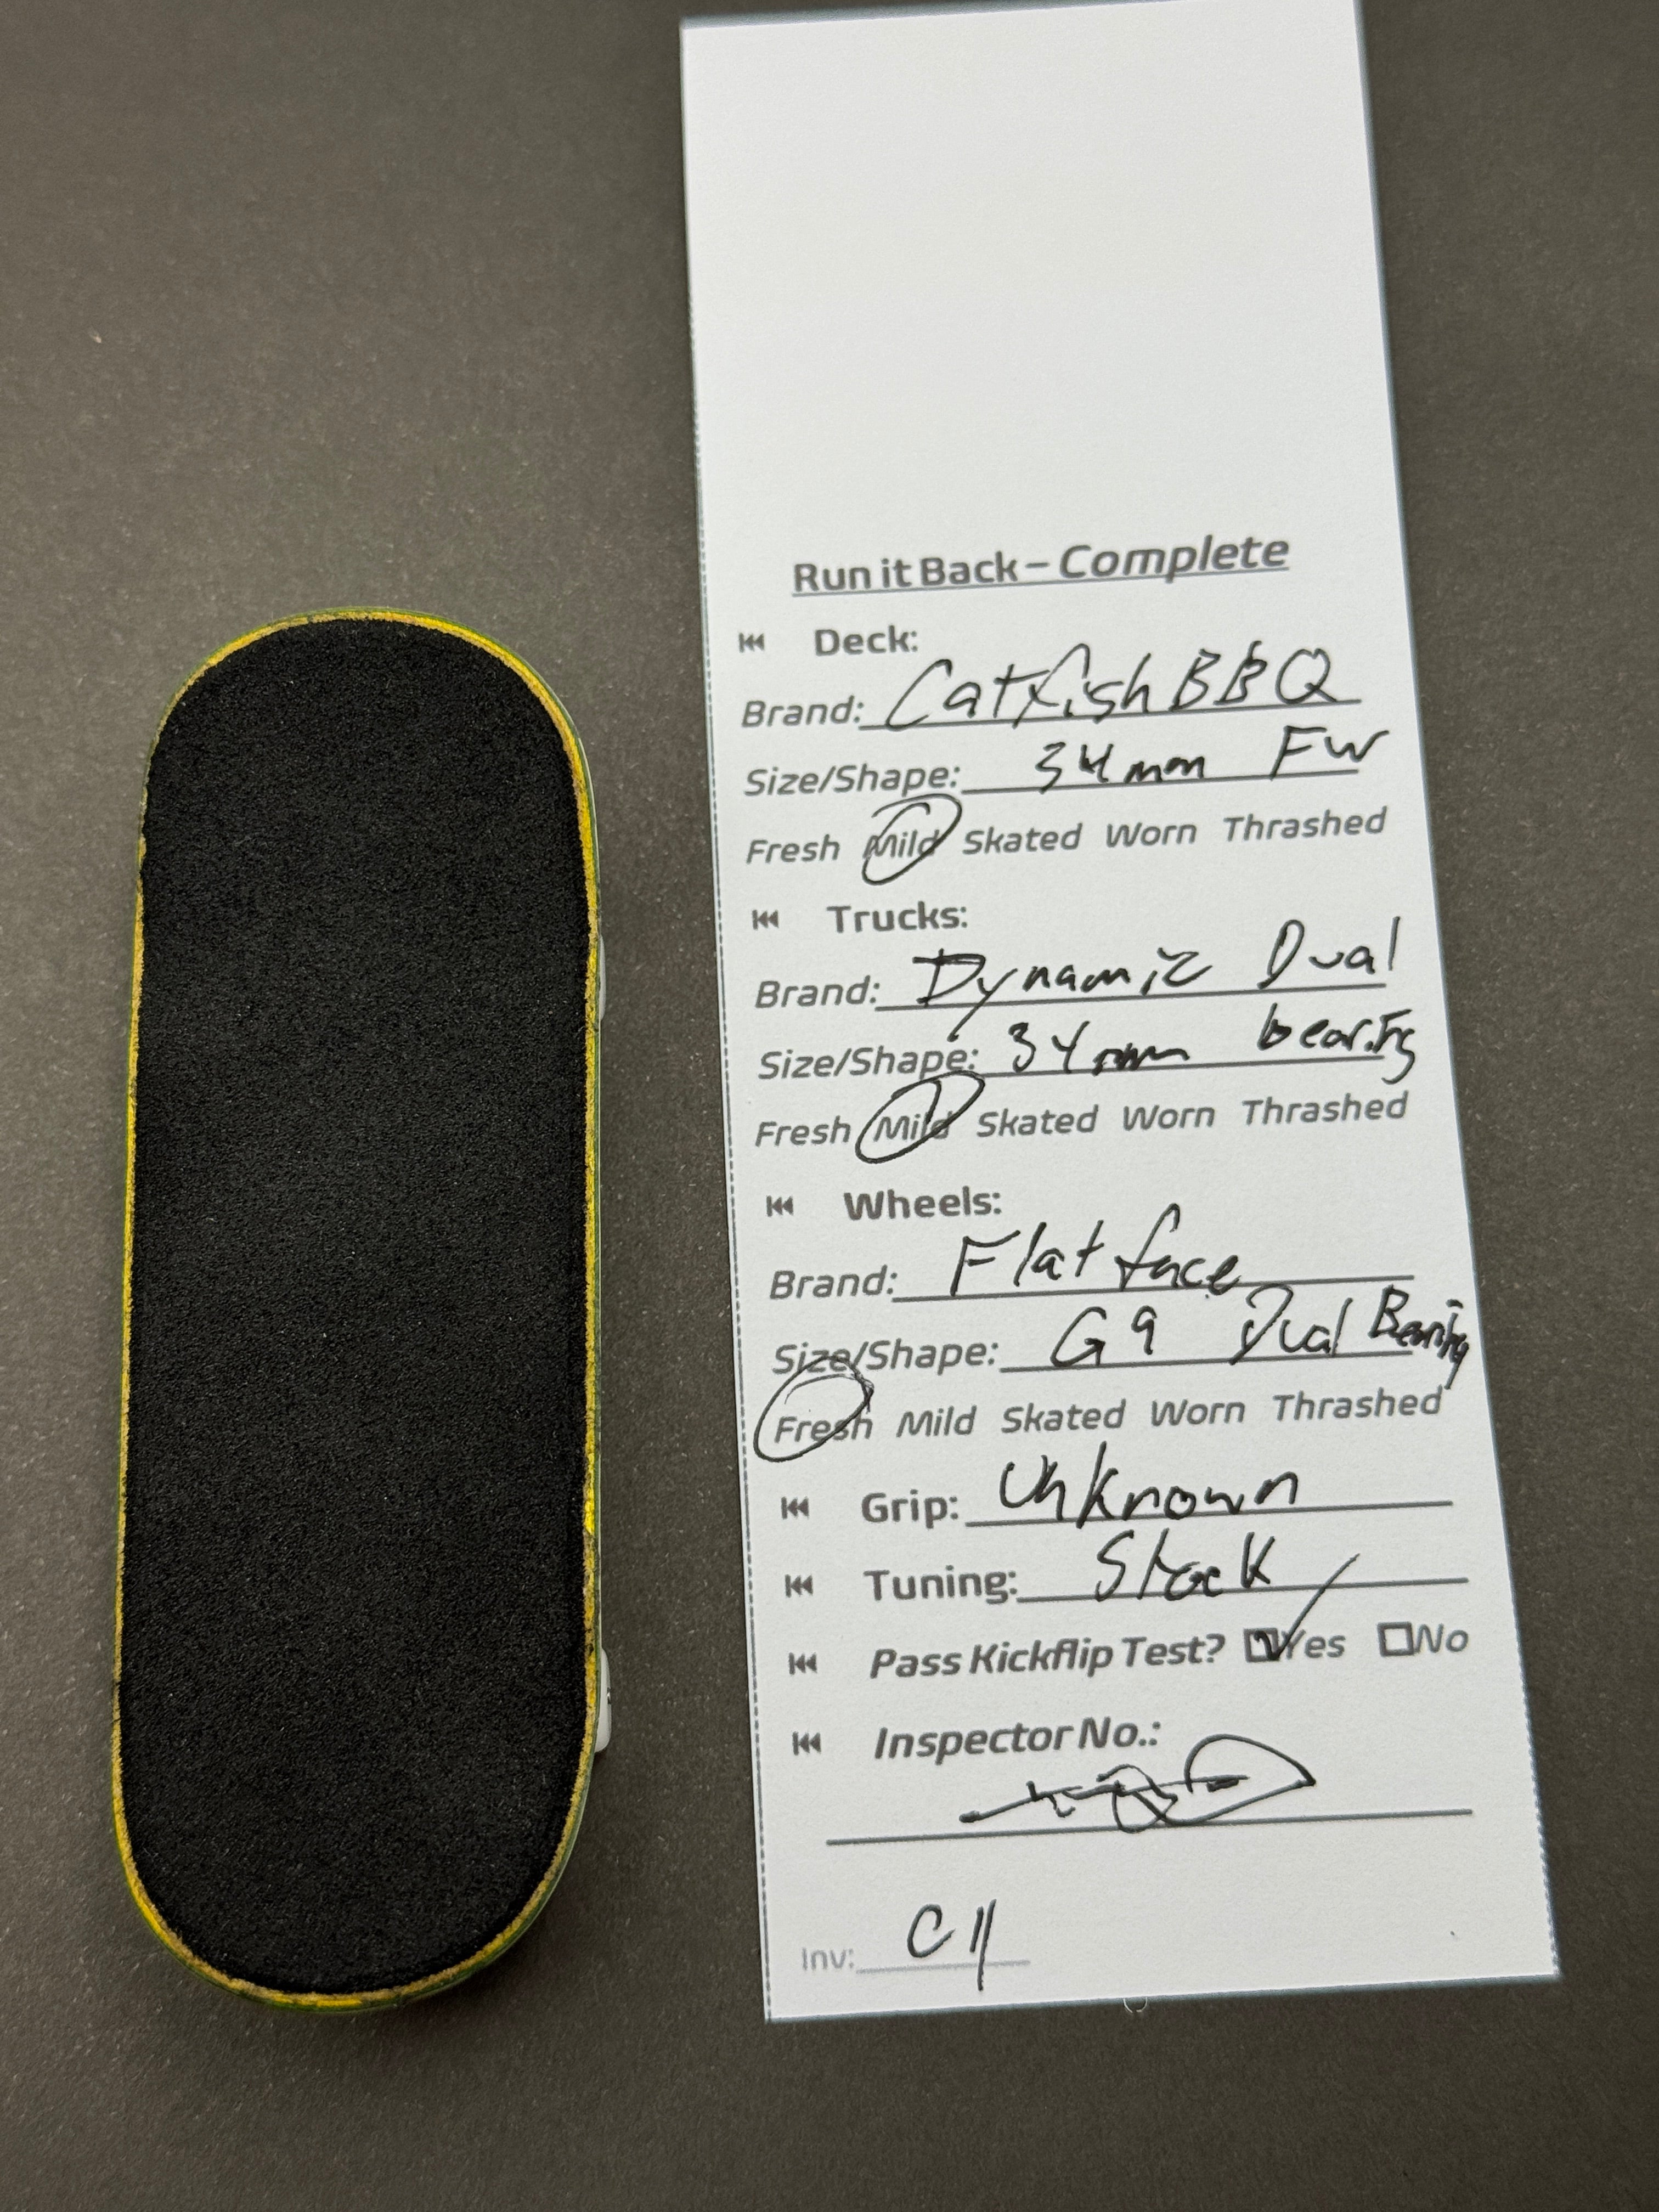 Run it Back – Complete
Deck:
Brand: Catfish BBQ
Size/Shape: 34mm FW
Fresh Mild Skated Worn Thrashed
Trucks:
Brand: Dynamic Dual
Size/Shape: 34mm bearing
Fresh Mild Skated Worn Thrashed
Wheels:
Brand: Flatface
Size/Shape: G9 Dual Bearing
Fresh Mild Skated Worn Thrashed
Grip: Unknown
Tuning: Stock
Pass Kickflip Test? Yes No
Inspector No.:
Inv: C11